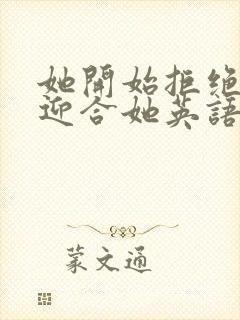 她開始拒绝
迎合她英語
蒙文通